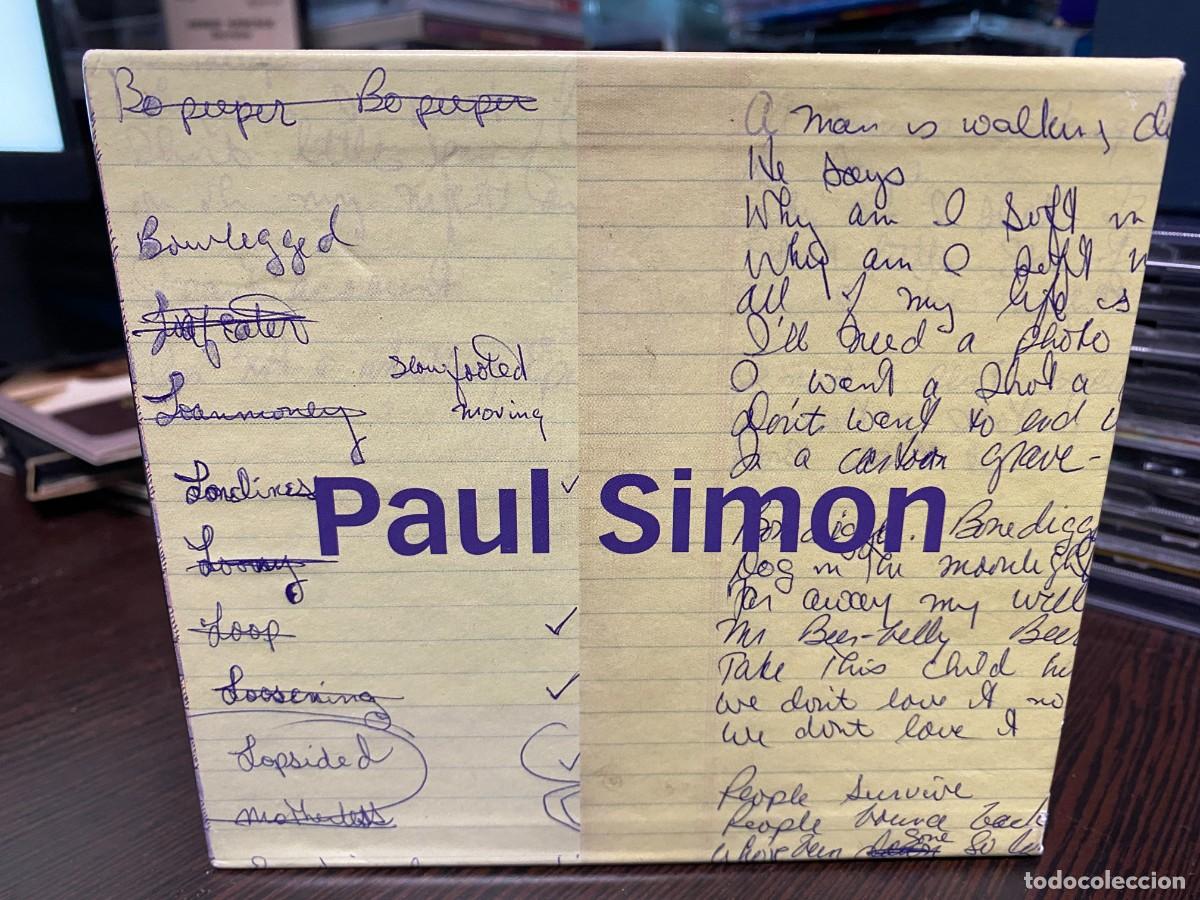 Bo peeper Bo peeper
Bowlegged
slow footed
moving
Loanmoney
Loneliness
Loony
Loop
Loosening
Lopsided
Motherless
Paul Simon
A man is walking do
He says
Why am I soft in
Why am I soft
all of my life is
I'll need a photo
I want a shot a
Don't want to end u
In a cartoon grave-
Bonedigger. Bonedigg
Dog in the moonligh
Far away my well
Mr Beer-belly Beer
Take this child
we don't love it no
we don't love it
People survive
People bounce back
gone
todocoleccion